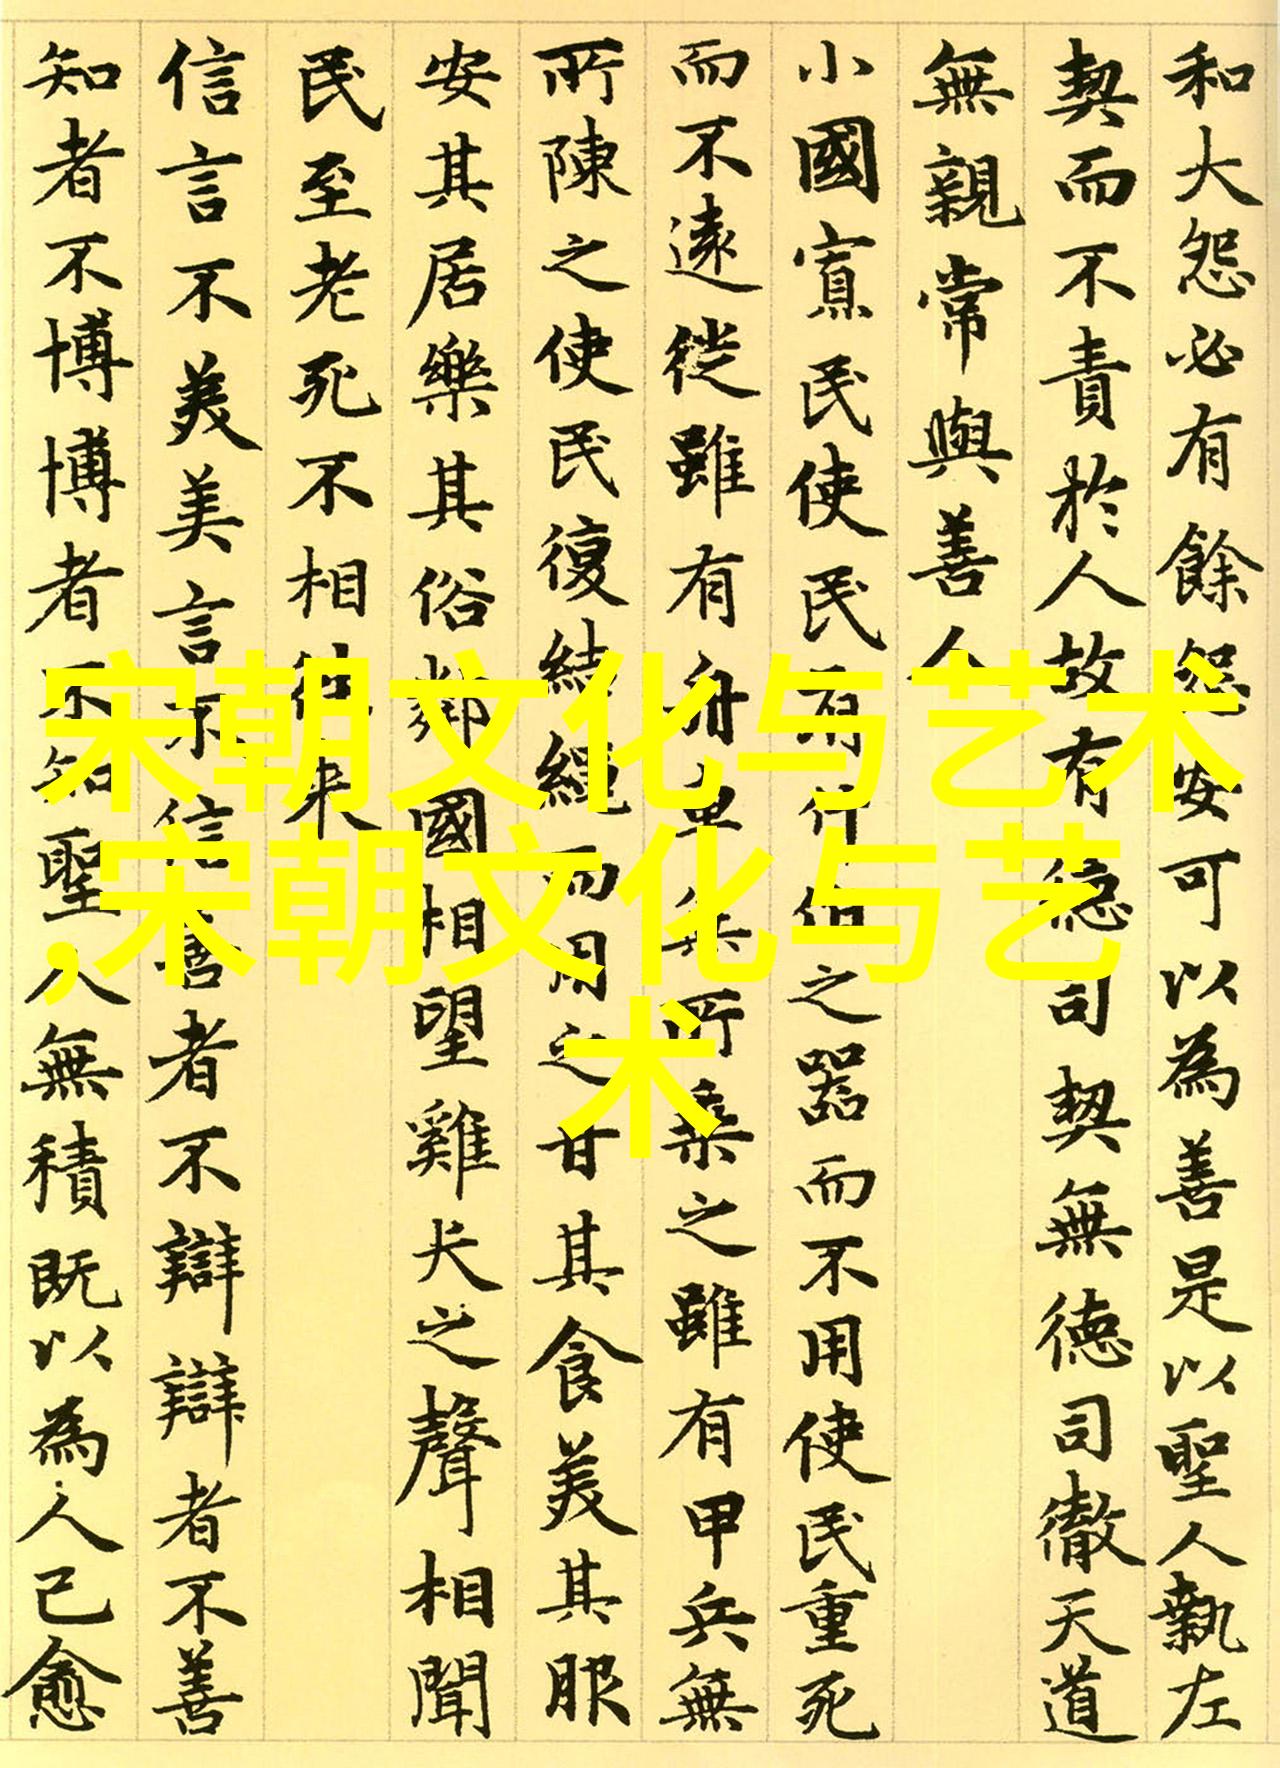 和大怨必有餘怨安可以為善是以聖人執左
契而不責於人故有德司契無德司徹天道
無親常與善人
小國寡民使民有什伯之器而不用使民重死
而不遠徙雖有舟車無所乘之雖有甲兵無
所陳之使民復結繩而用之甘其食美其服
安其居樂其俗鄰國相望雞犬之聲相聞
民至老死不相往来
信言不美美言不信善者不辯辯者不善
知者不博博者不知聖人無積既以為人己愈
宋朝文化与艺术
,宋朝文化与艺
术